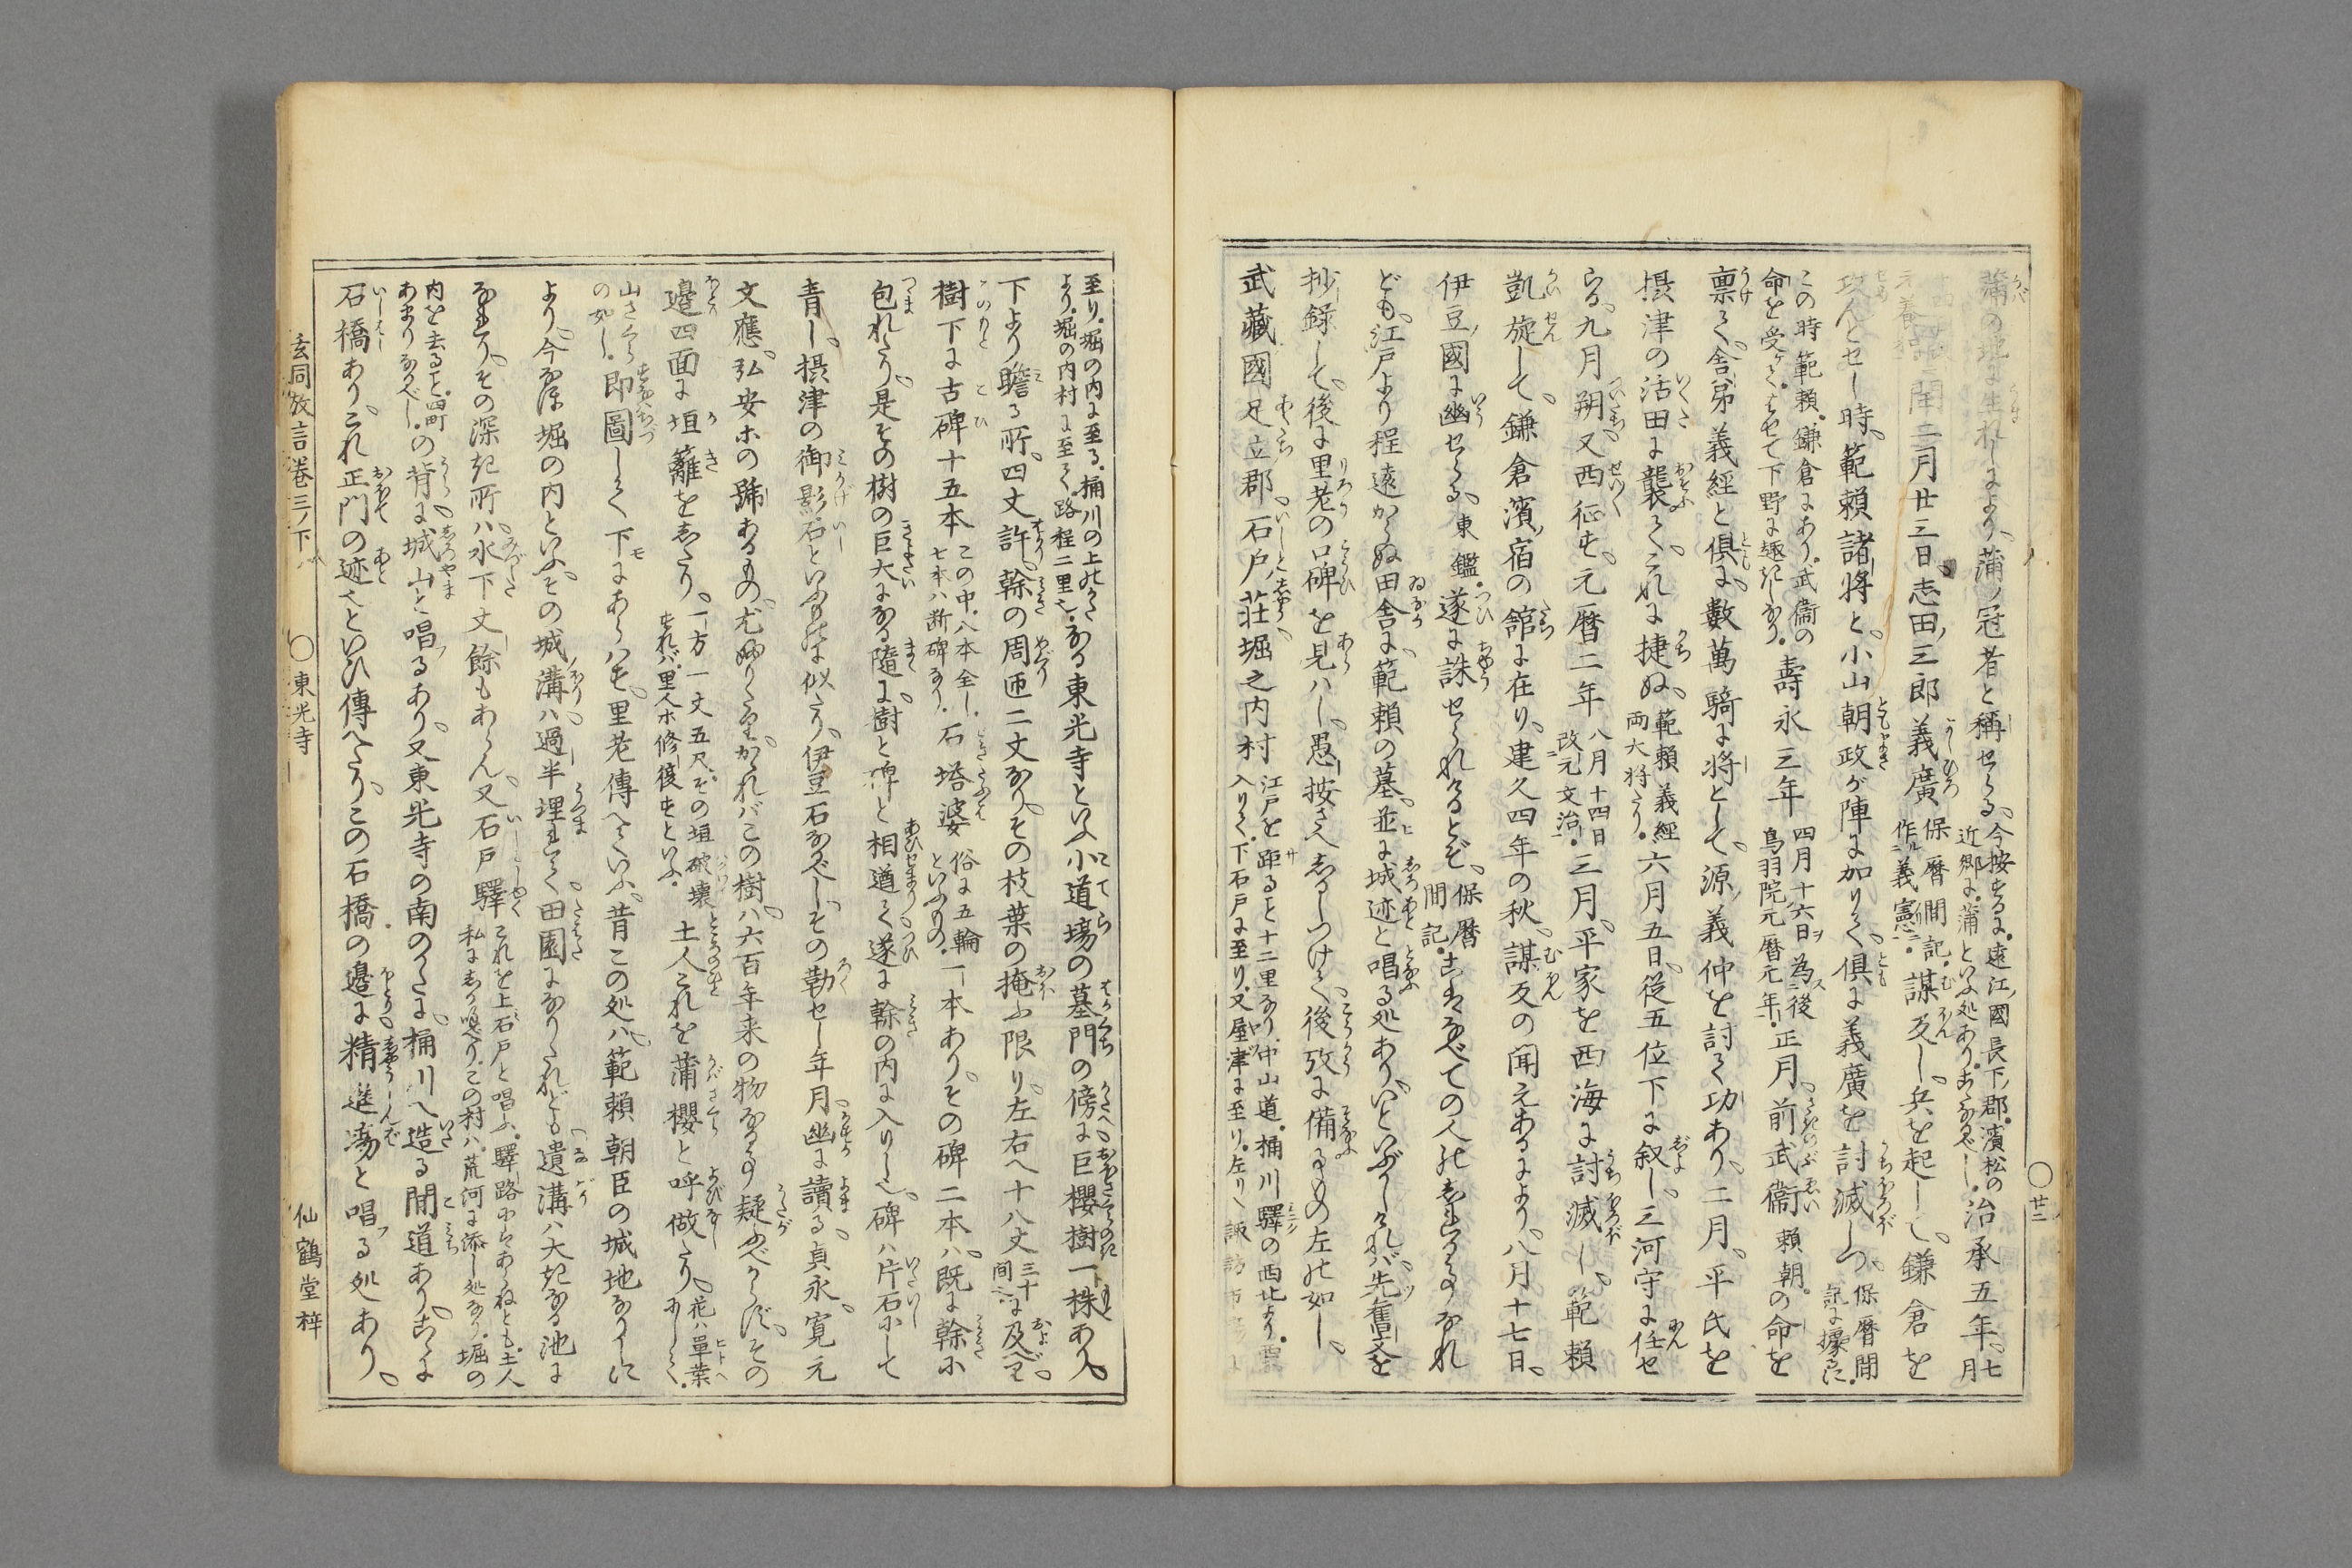 蒲の地に生れしにより、蒲ノ冠者と稱せらる、今按ずるに、遠江ノ國長下ノ郡、濱松の近郷に、蒲といふ処あり、治承五年、七月
閏二月廿三日、志田ノ三郎義廣 保暦間記、作ル義憲ニ 謀反し、兵を起して、鎌倉を
攻んとせし時、範賴諸将と、小山朝政が陣に加りて、倶に義廣を討滅しつ、保暦間記に據るに、
この時範賴、鎌倉にあり、武衞の命を受て、下野に趣きしなり、壽永三年 四月十六日為後鳥羽院元暦元年、正月、前武衞 賴朝 の命を
禀て、舎弟義經と倶に、數萬騎に将として、源ノ義仲を討て功あり、二月、平氏を
摂津の活田に襲て、これに捷ぬ、範賴義經両大将たり、六月五日、從五位下に叙し、三河守に任せ
らる、九月朔、又西征す、元暦二年 八月十四日改元文治 三月、平家を西海に討滅し、範賴
凱旋して、鎌倉濱ノ宿の舘に在り、建久四年の秋、謀反の聞えあるにより、八月十七日、
伊豆ノ國に幽せらる、東鑑、遂に誅せられけるとぞ、保暦間記、なべての人のしれる事なれ
ども、江戸より程遠からぬ田舎に、範賴の墓、並に城迹と唱る処あり、いといぶかしければ、先舊文を
抄録して、後に里老の口碑を見ハし、愚按さへしるしつけて、後攷に備るもの左の如し、
武藏國足立郡、石戸ノ荘堀之内村 江戸を距ると十二里なり、中山道、桶川ノ驛の西北より、入りて、下石戸に至り、又屋津に至り、左りへ
至り、堀の内に至る、桶川の上のかたより、堀の内村に至て、路程二里也、なる東光寺といふ小道場の墓門の傍に巨櫻樹一株あり、
下より瞻る所、四丈許、幹の周匝二丈なり、その枝葉の掩ふ限り、左右へ十八丈 三十間 に及べり、
樹下に古碑十五本 この中、八本全し、七本ハ断碑なり、石塔婆 俗に五輪といふもの、一本あり、その碑二本ハ、既に幹に
包れたり、是その樹の巨大になる隨に、樹と碑と相遒て、遂に幹の内に入りし也、碑ハ片石にして
青し、摂津の御影石といふものに似たり、伊豆石なるべし、その勒せし年月、幽に讀る、貞永、寛元
文應、弘安ホの號あるもの、尤夥しかれバこの樹ハ、六百年来の物なる事、疑ふべからず、その
邊四面に垣籬をしたり、一方一丈五尺、その垣破壊すれバ、里人ホ修復すといふ、土人これを蒲櫻と呼做たり、花ハ單葉にして、
山さくらの如し、即圖して下にあらハす、里老傳へていふ、昔この処ハ、範賴朝臣の城地なりしに
より、今なほ堀の内といふ、その城溝ハ、過半埋もれて、田園になりたれども、遺溝ハ大きなる池に
なれり、その深き所ハ、水下丈餘もあらん、又石戸驛 これを上石戸と唱ふ、驛路にはあらねとも、土人私にしか唱へり、この村ハ、荒河に添し処なり、堀の
内を去ること、四町あまりなるべし、の背に、城山と唱るあり、又東光寺の南のかたに、桶川へ造る間道あり、こゝに
石橋あり、これ正門の迹也といひ傳へたり、この石橋の邊に、精進場と唱る処あり、
玄同放言巻三ノ下 〇東光寺 仙鶴堂梓
〇廿二